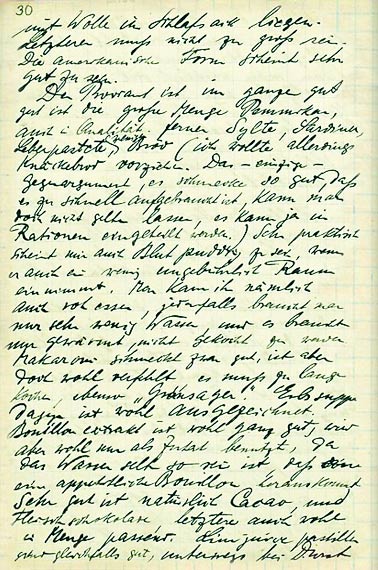 30
mit Wolle im Schlafsack liegen.
Letzterer muss nicht zu gross sein
Die amerikanische Form scheint sehr
gut zu sein.
Der Proviant ist im ganzen gut
gut ist die grosse Menge Pemmikan,
auch in Qualität, ferner Sylte, Sardinen,
Leberpastete, Brod (ich wollte allerdings
Knäckebrod vorziehen. Das - einzige -
Gegenargument, es schmecke so gut, dass
es zu schnell aufgebraucht ist, kann man
doch nicht gelten lassen, es kann ja in
Rationen eingeteilt werden.) Sehr praktisch
scheint mir auch Blutpudding zu sein, wenn
er auch ein wenig ungebührlich Raum
einnimmt. Man kann ihn nämlich
auch roh essen, jedenfalls braucht man
nur sehr wenig Wasser, und es braucht
nur gewärmt, nicht gekocht zu werden
Makaroni schmeckt zwar gut, ist aber
doch wohl verfehlt es muss zu lange
kochen, ebenso "Gronsager". Erbsuppe
dagegen ist wohl ausgezeichnet.
Bouillonextrakt ist wohl ganz gut, wird
aber wohl nur als Zusatz benutzt, da
das Wasser selten so rein ist, dass
eine appetitliche Bouillon herauskommt
Sehr gut ist natürlich Cacao, und
Fleischschokolade letztere auch wohl
in Menge passend. Limejuice pastillen
sind gleichfalls gut, unterwegs bei Durst